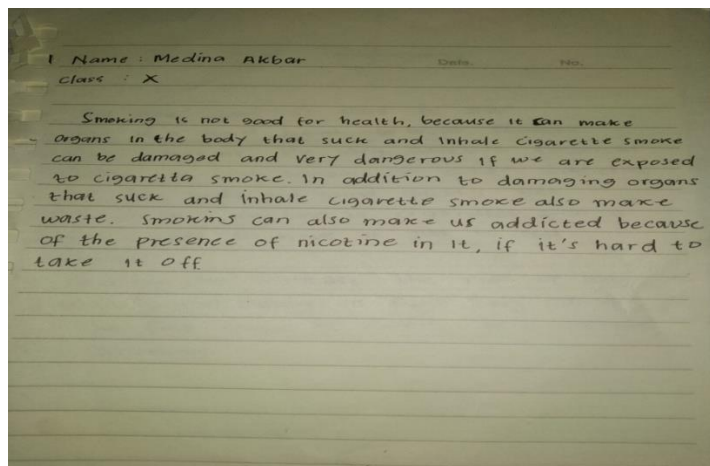 1 Name : Medina Akbar Date. No.
Class : X
Smoking is not good for health, because it can make
organs in the body that suck and inhale cigarette smoke
can be damaged and very dangerous if we are exposed
to cigaretta smoke. In addition to damaging organs
that suck and inhale cigarette smoke also make
waste. Smoking can also make us addicted because
of the presence of nicotine in it, if it's hard to
take it off